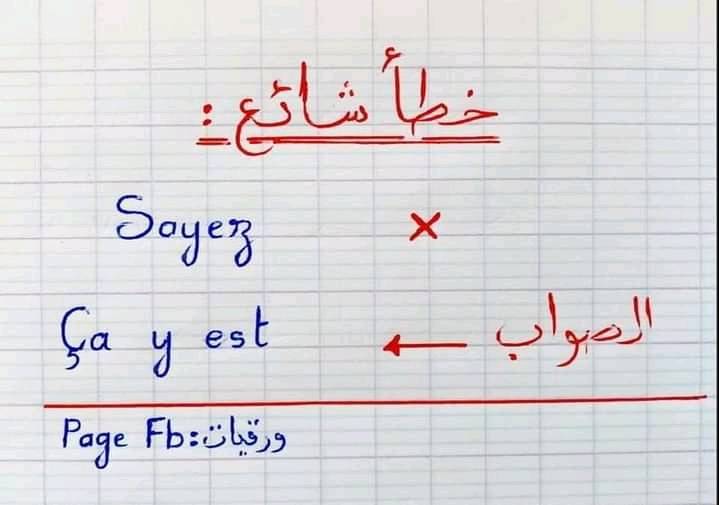 خطأ شائع :
Sayez ×
Ça y est ← الصواب
Page Fb: ورقيات